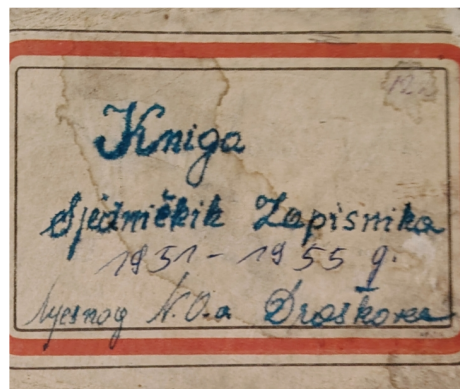 12.
Kniga
Sjedničkih Zapisnika
1951 - 1955 g.
Mjesnog N.O.a Draškovec